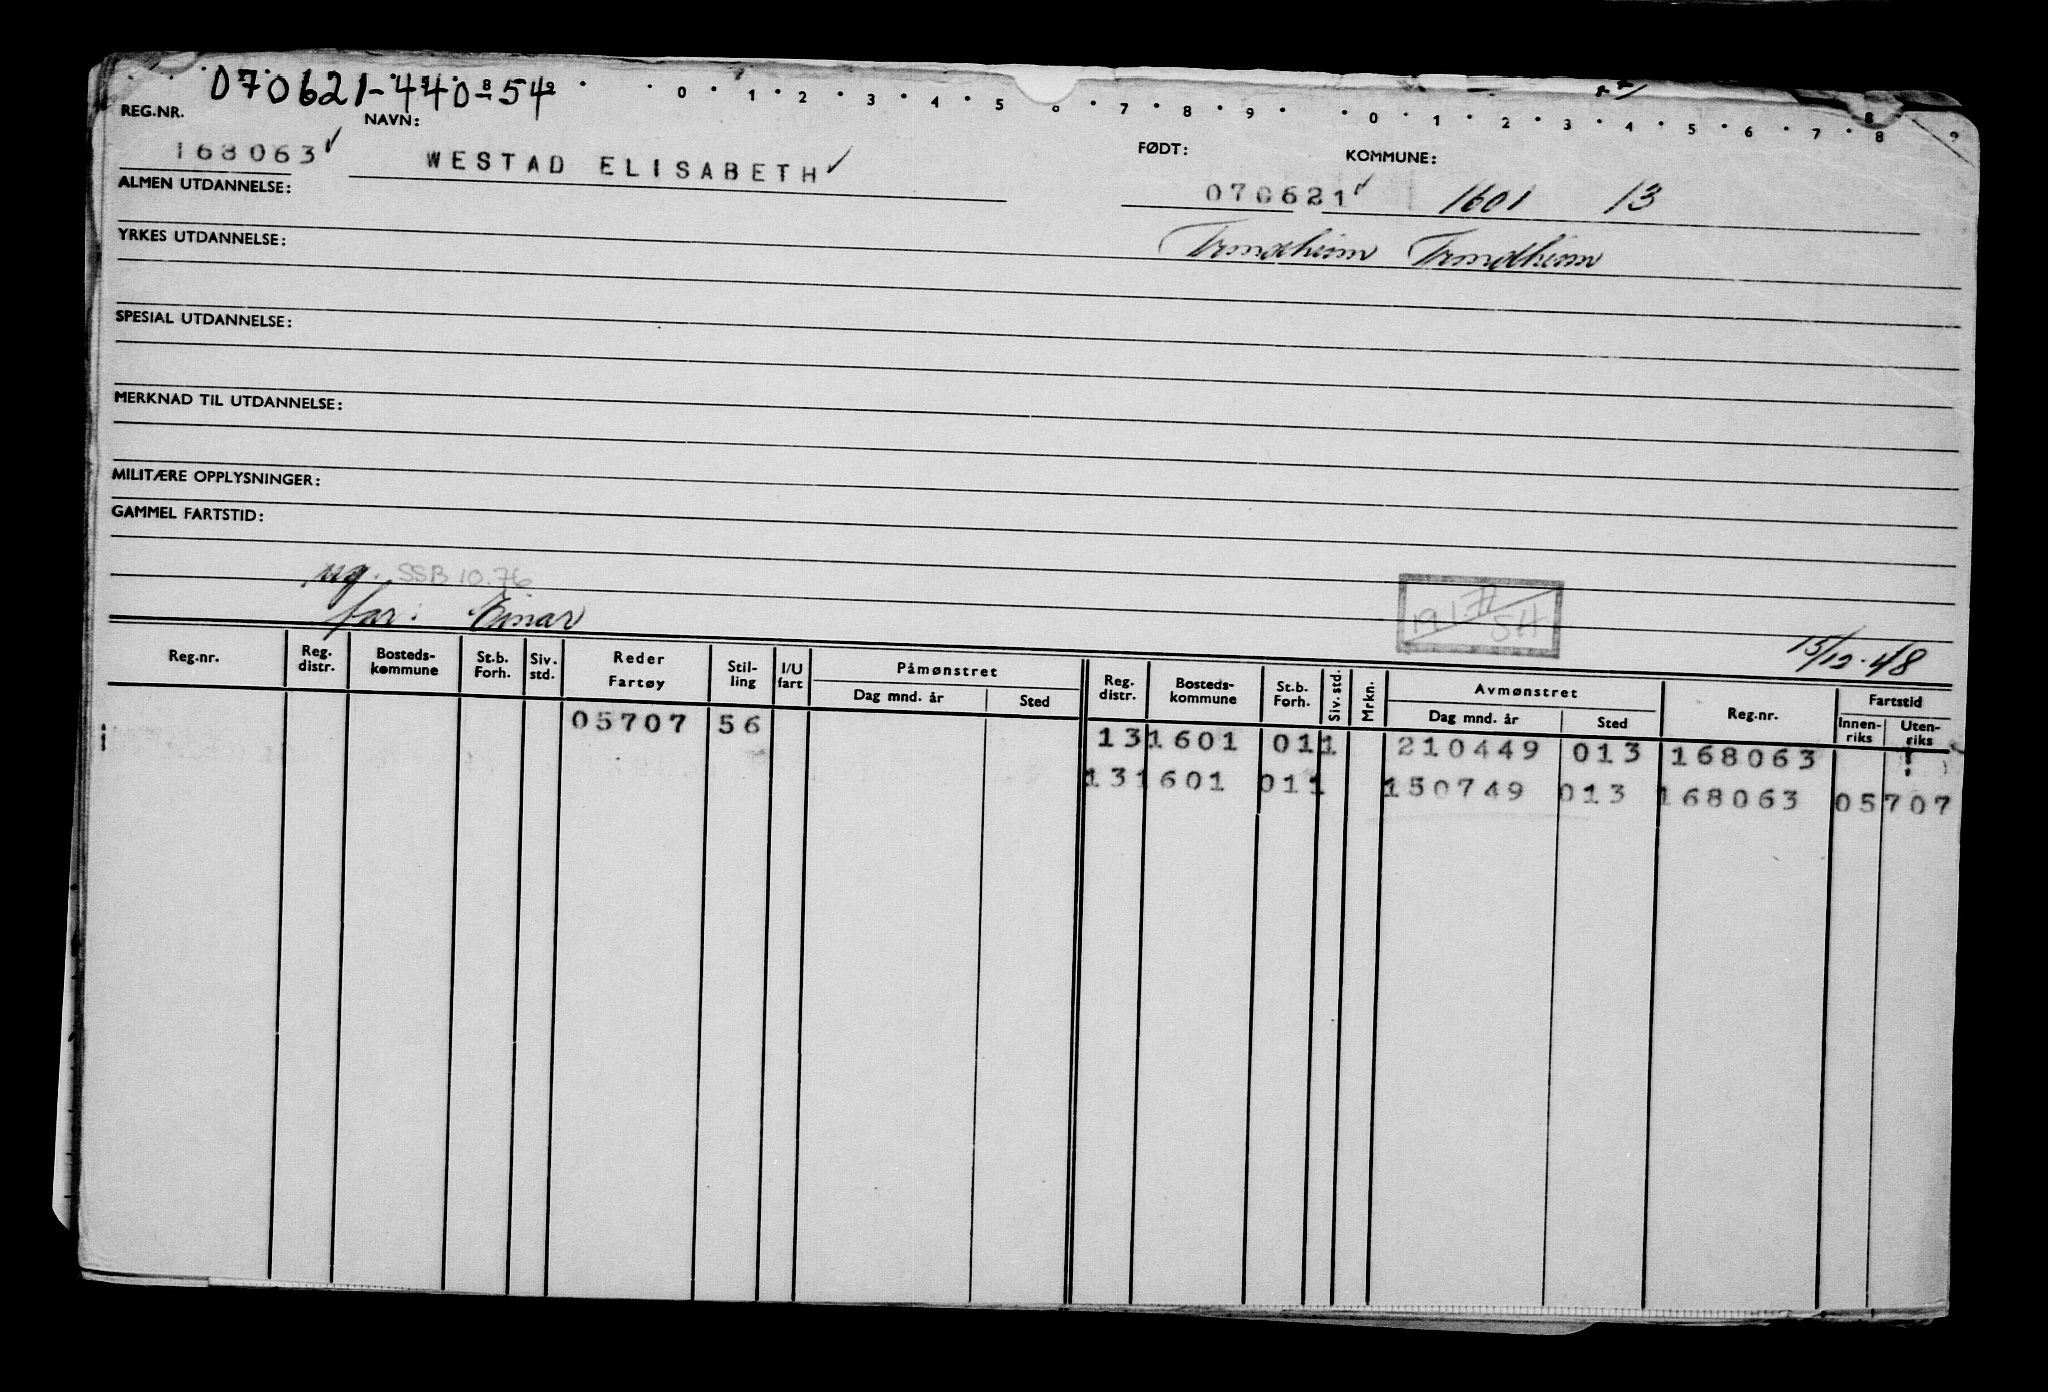 070621-440 54
0 1 2 3 4 5 6 7 8 9 0 1 2 3 4 5 6 7 8 9
REG.NR. NAVN: FØDT: KOMMUNE:
168063 WESTAD ELISABETH 070621 1601 13
ALMEN UTDANNELSE:
Trondheim Trondheim
YRKES UTDANNELSE:
SPESIAL UTDANNELSE:
MERKNAD TIL UTDANNELSE:
MILITÆRE OPPLYSNINGER:
GAMMEL FARTSTID:
ug. SSB 10.76
far: Einar
15/12.48
Reg.nr. Reg. distr. Bosteds-kommune St.b. Forh. Siv. std. Reder Fartøy Stil-ling I/U fart Påmønstret Dag mnd. år Sted Reg. distr. Bosteds-kommune St.b. Forh. Siv. std. Mrkn. Avmønstret Dag mnd. år Sted Reg.nr. Fartstid Innen-riks Uten-riks
05707 56 131601 011 210449 013 168063
131601 011 150749 013 168063 05707